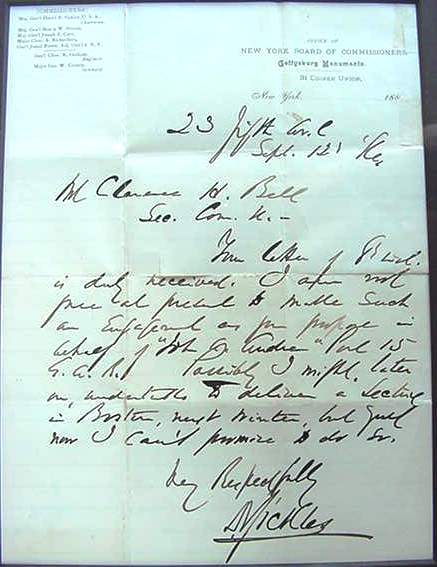 COMMISSIONERS
Maj. Gen'l Daniel E. Sickles, U. S. A.,
Chairman.
Maj. Gen'l Henry W. Slocum,
Maj. Gen'l Joseph B. Carr,
Major Chas. A. Richardson,
Gen'l Josiah Porter, Adj. Gen'l S. N. Y.
Engineer
Major Geo. W. Cooney,
Secretary
OFFICE OF
NEW YORK BOARD OF COMMISSIONERS,
Gettysburg Monuments.
21 COOPER UNION,
New York, 188
23 fifth Av.
Sept. 12
Mr Clarence H. Bell
Sec. Com. &c. –
Your letter of
is duly received. I am not
free at present to make such
an engagement as you propose in
behalf of "John A. Andrew" Post 15
G.A.R. Possibly I might, later
on, undertake to deliver a lecture
in Boston, next winter, but just
now I can't promise to do so.
Very Respectfully
D Sickles